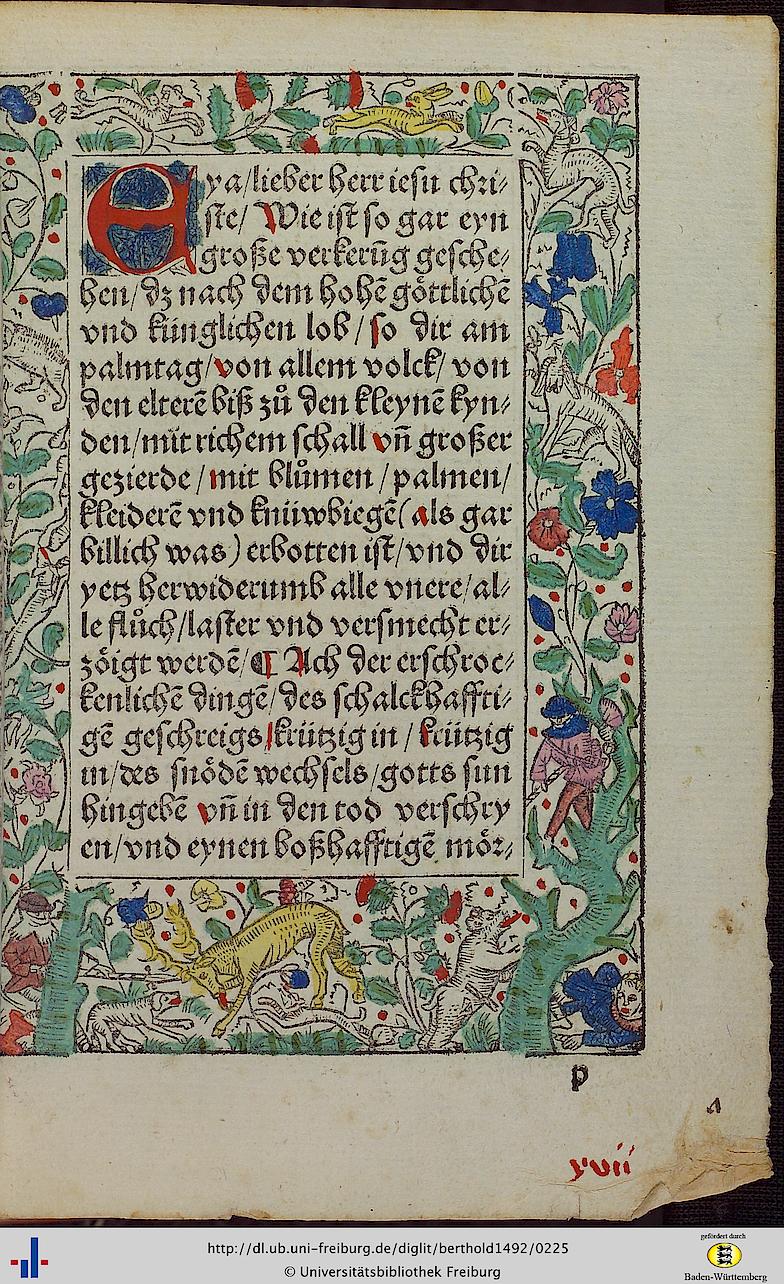 Eya/lieber herr iesu chri⸗
ste/ Wie ist so gar eyn
große verkerūg gesche⸗
hen/dz nach dem hohē göttlichē
vnd künglichen lob/so dir am
palmtag/von allem volck/ von
den elterē biß zů den kleynē kyn⸗
den/mit richem schall vn̄ großer
gezierde/mit blůmen/palmen/
kleiderē vnd knüwbiegē(als gar
billich was)erbotten ist/vnd dir
yetz herwiderumb alle vnere/al⸗
le flůch/laster vnd versmecht er⸗
zöigt werdē/¶ Ach der erschroc⸗
kenlichē dingē/des schalckhaffti⸗
gē geschreigs/krützig in/krützig
in/des snödē wechsels/gotts sun
hingebē vn̄ in den tod verschry
en/vnd eynen boßhafftigē mör⸗
p
xvii
http://dl.ub.uni-freiburg.de/diglit/berthold1492/0225
© Universitätsbibliothek Freiburg
gefördert durch
Baden-Württemberg